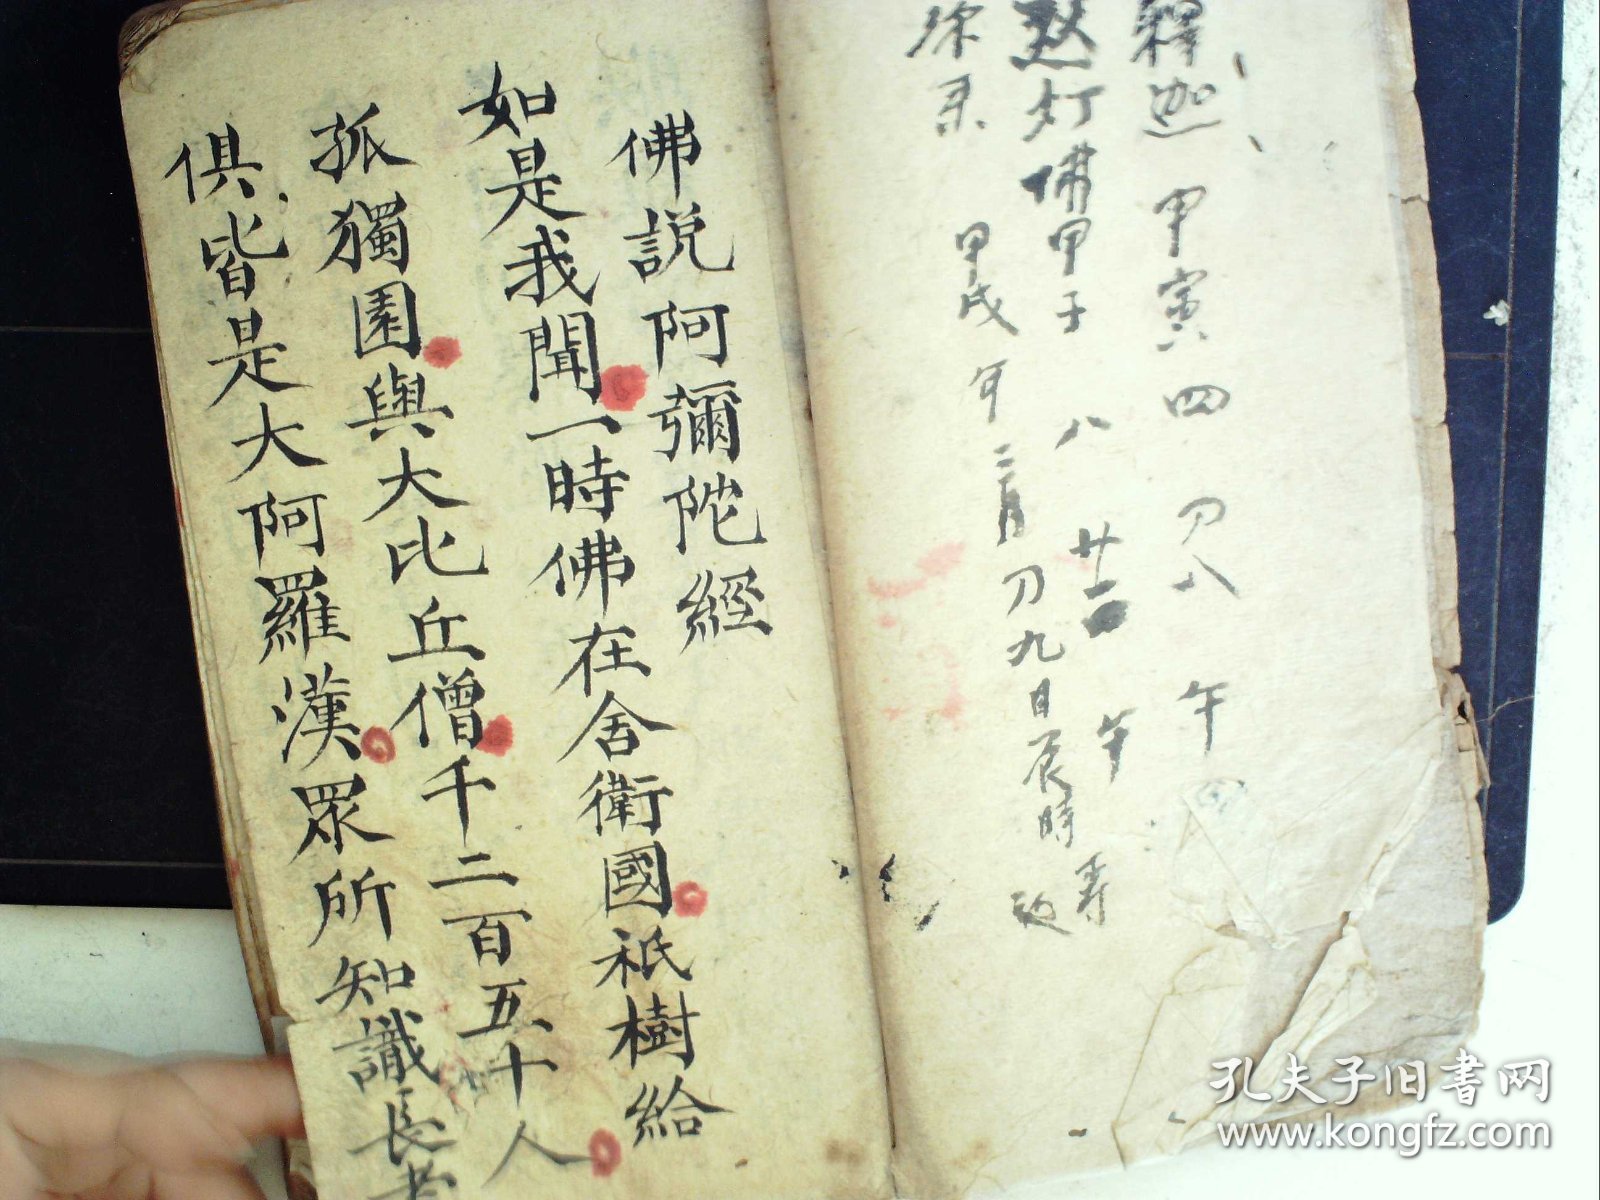 釋迦 甲寅 四 刀八 午
燃灯佛甲子 八 廿 午 寿
甲戌年 二月 刀九日辰時
佛説阿彌陀經
如是我聞一時佛在舍衛國祇樹給
孤獨園與大比丘僧千二百五十人
俱皆是大阿羅漢眾所知識長老
孔夫子旧書网
www.kongfz.com